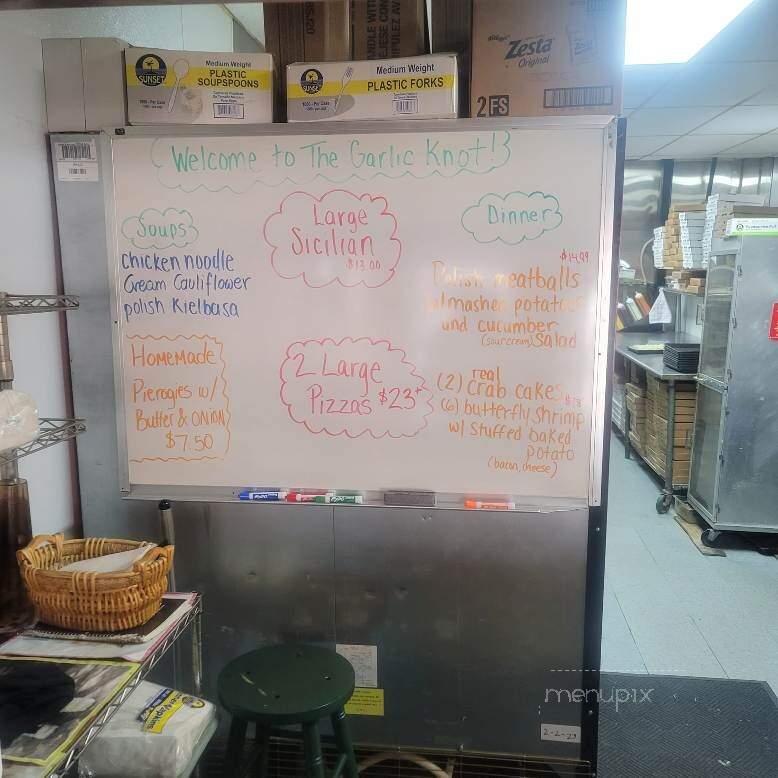 SUNSET
Medium Weight
PLASTIC
SOUPSPOONS
SUNSET
Medium Weight
PLASTIC FORKS
Zesta
Original
2 FS
Welcome to The Garlic Knot!
Soups
chicken noodle
Cream Cauliflower
polish Kielbasa
HomeMade
Pierogies w/
Butter & ONION
$7.50
Large
Sicilian
$13.00
2 Large
Pizzas $23+
Dinner
$14.99
Polish meatballs
w/mashed potatoes
und cucumber
(sour cream) Salad
(2) real crab cakes
(6) butterfly shrimp
w/ Stuffed baked
potato
(bacon, cheese)
menupix
2-2-23